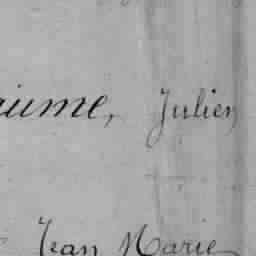 aume, Julien
Jean Marie